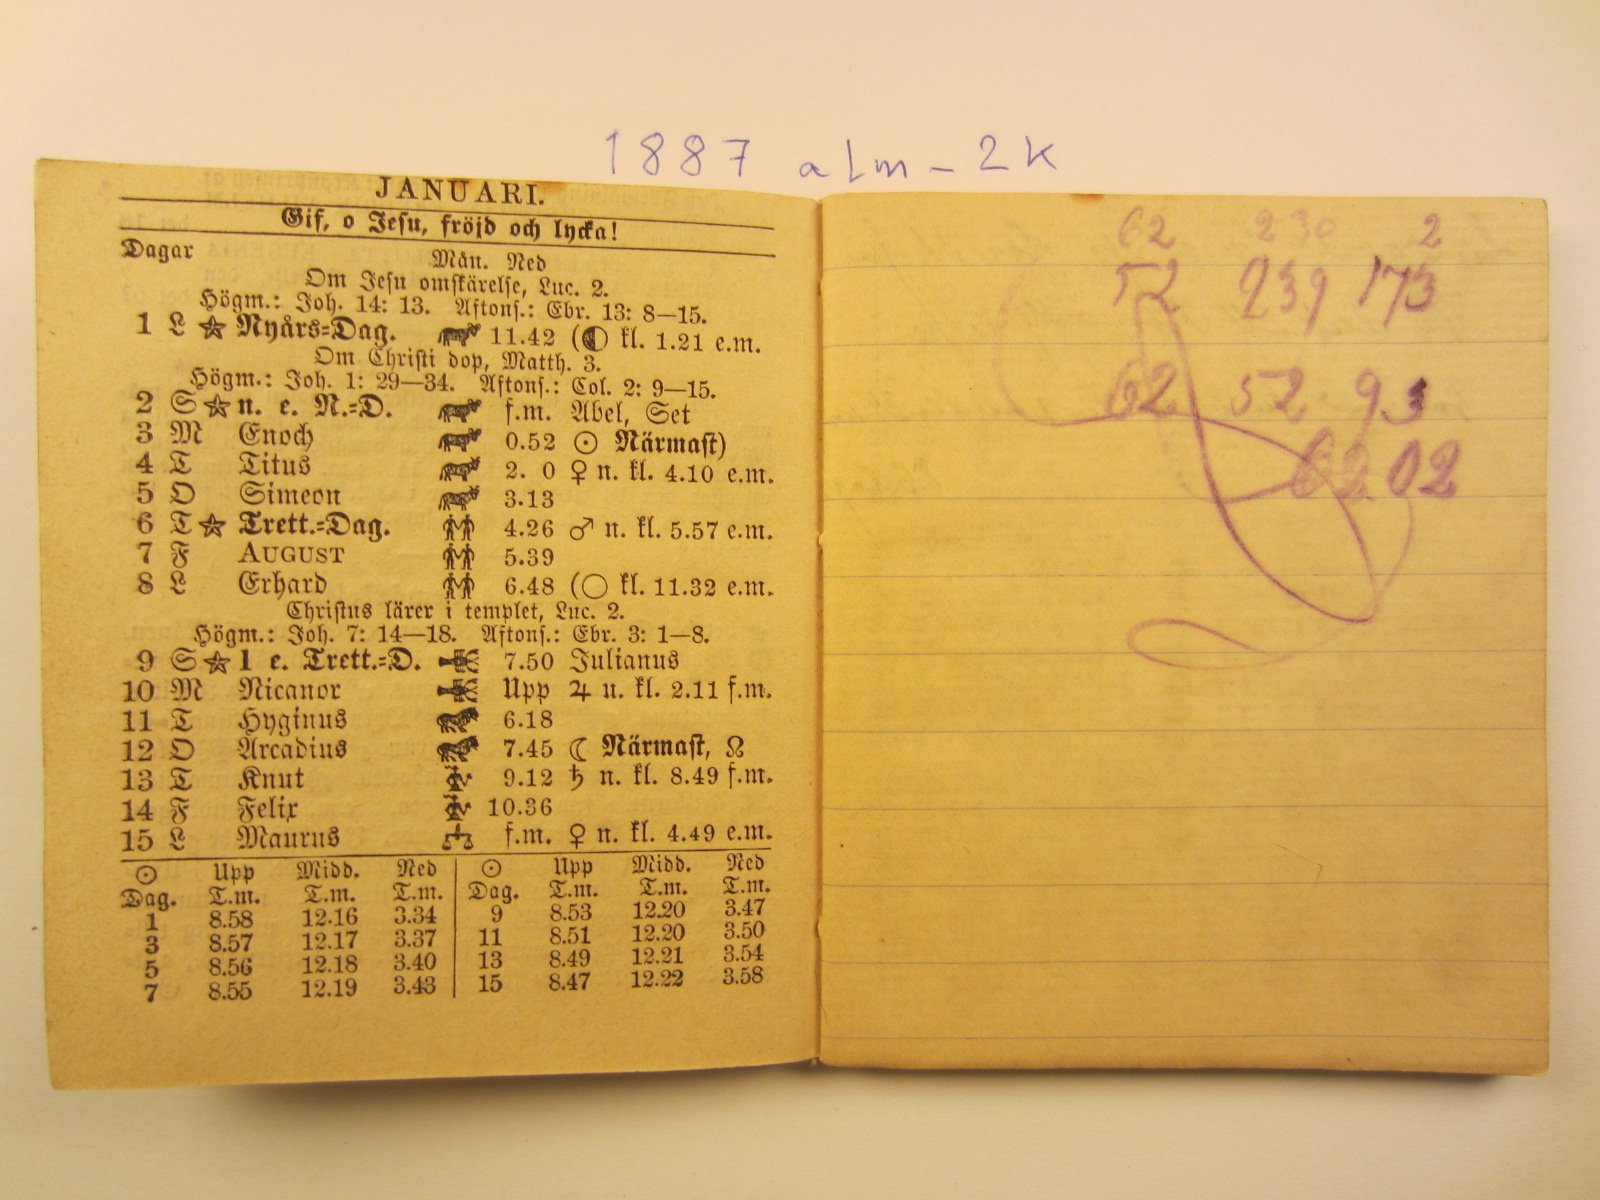 1887 alm-2k
JANUARI.
Gif, o Jesu, fröjd och lycka!
Dagar Mån. Ned
Om Jesu omskärelse, Luc. 2.
Högm.: Joh. 14: 13. Aftons.: Ebr. 13: 8—15.
1 L ☆ Nyårs=Dag. 11.42 (◐ kl. 1.21 e.m.
Om Christi dop, Matth. 3.
Högm.: Joh. 1: 29—34. Aftons.: Col. 2: 9—15.
2 S ☆ n. e. N.=D. f.m. Abel, Set
3 M Enoch 0.52 ☉ Närmast)
4 T Titus 2. 0 ♀ n. kl. 4.10 e.m.
5 O Simeon 3.13
6 T ☆ Trett.=Dag. 4.26 ♂ n. kl. 5.57 e.m.
7 F AUGUST 5.39
8 L Erhard 6.48 (○ kl. 11.32 e.m.
Christus lärer i templet, Luc. 2.
Högm.: Joh. 7: 14—18. Aftons.: Ebr. 3: 1—8.
9 S ☆ 1 e. Trett.=D. 7.50 Julianus
10 M Nicanor Upp ♃ n. kl. 2.11 f.m.
11 T Hyginus 6.18
12 O Arcadius 7.45 ☾ Närmast, ☊
13 T Knut 9.12 ♄ n. kl. 8.49 f.m.
14 F Felix 10.36
15 L Maurus f.m. ♀ n. kl. 4.49 e.m.
☉ Upp Midd. Ned ☉ Upp Midd. Ned
Dag. T.m. T.m. T.m. Dag. T.m. T.m. T.m.
1 8.58 12.16 3.34 9 8.53 12.20 3.47
3 8.57 12.17 3.37 11 8.51 12.20 3.50
5 8.56 12.18 3.40 13 8.49 12.21 3.54
7 8.55 12.19 3.43 15 8.47 12.22 3.58
62 230 2
52 239 173
62 52 93
62 02